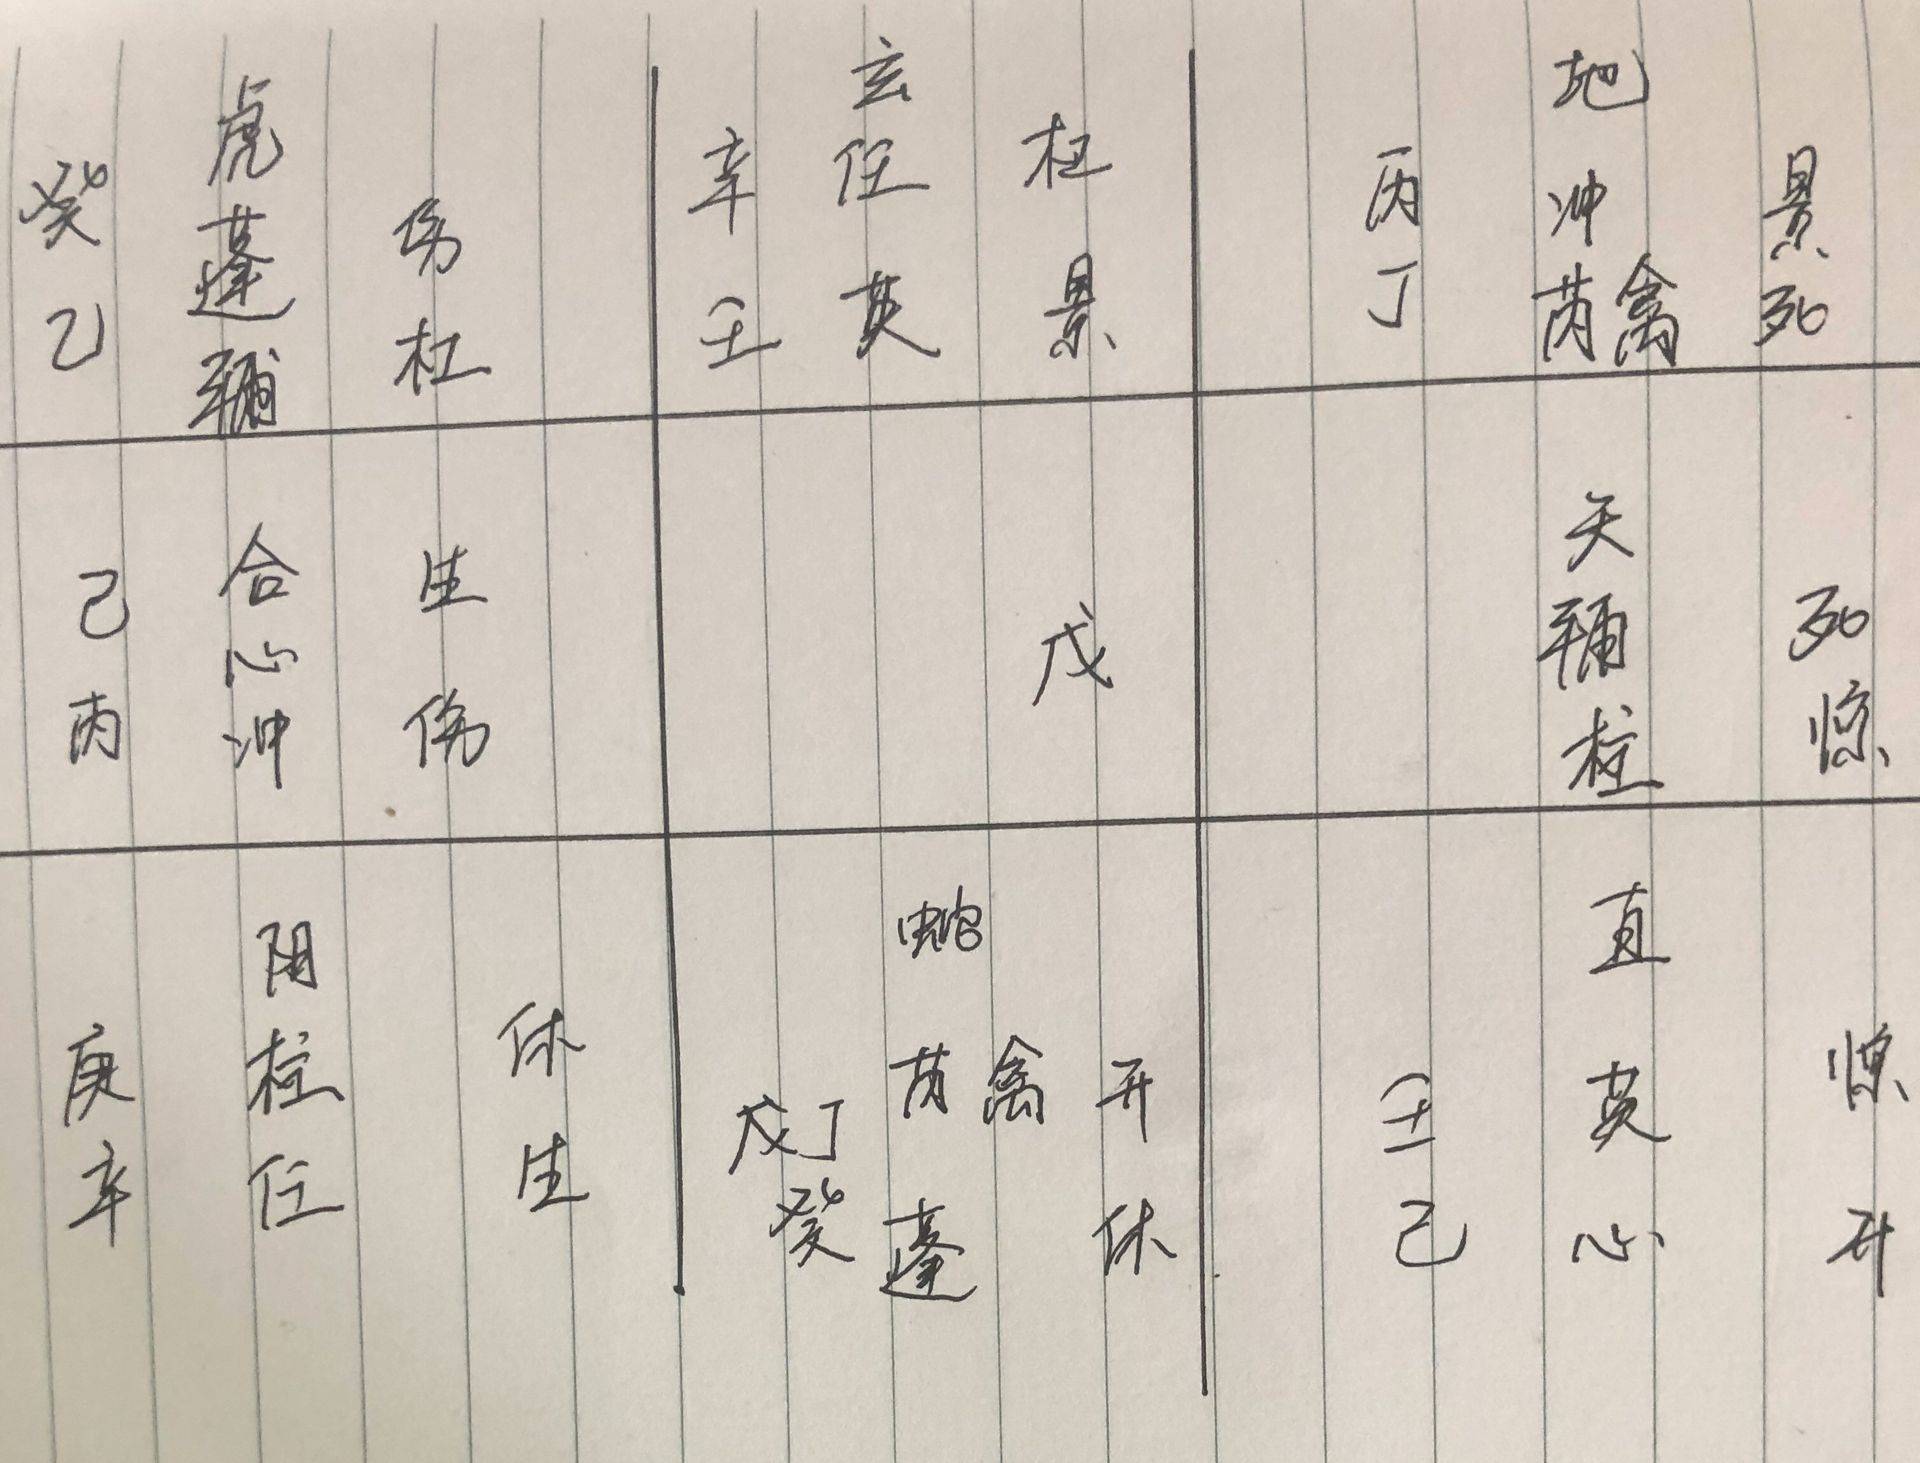 虎
癸 蓬 伤
乙 辅 杜
玄
辛 任 杜
壬 英 景
地
丙 冲 景
丁 芮禽 死
合 生
己 心
丙 冲 伤
戊
天
辅 死
柱 惊
阴
庚 柱 休
辛 任 生
蛇
戊丁 芮禽 开
癸 蓬 休
直
壬 英 惊
己 心 开